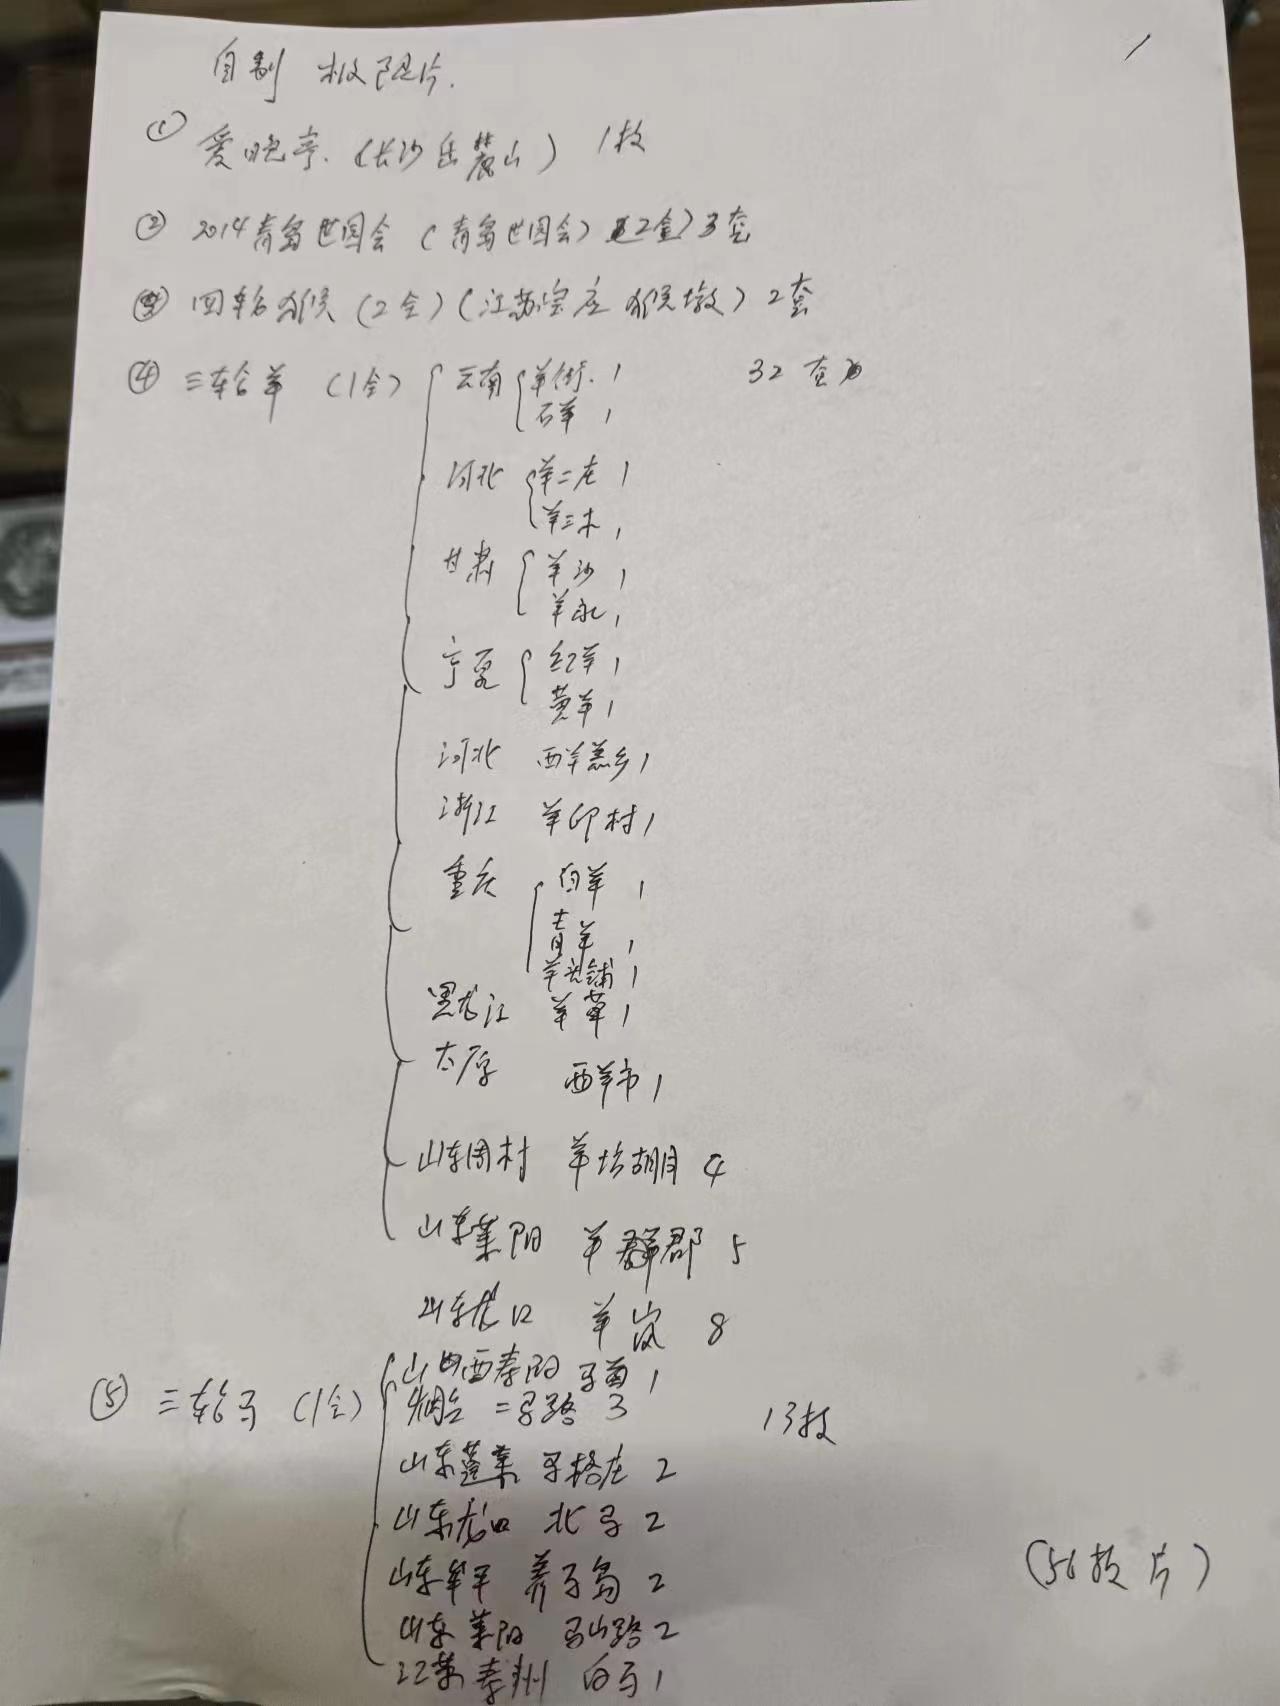 自制 极限片.
①爱晚亭.(长沙岳麓山) 1枚
② 2014青岛世园会 (青岛世园会) 2全) 3套
③ 四轮猴 (2全)(江苏宝应 猴墩) 2套
④ 三轮羊 (1全) 云南 羊街. 1 32套
石羊 1
河北 羊二庄 1
羊三木 1
甘肃 羊沙 1
羊永 1
宁夏 红羊 1
黄羊 1
河北 西羊羔乡 1
浙江 羊印村 1
重庆 白羊 1
青羊 1
羊头铺 1
黑龙江 羊草 1
太原 西羊市 1
山东周村 羊坊胡同 4
山东莱阳 羊郡 5
山东龙口 羊岚 8
山西 马首 1
⑤ 三轮马 (1全) 烟台 二马路 3 13枚
山东蓬莱 马格庄 2
山东龙口 北马 2
山东牟平 养马岛 2 (56枚片)
山东莱阳 马山路 2
江苏泰州 白马 1